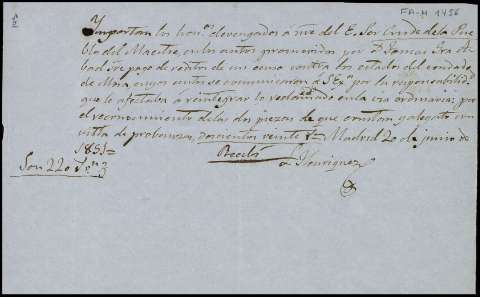 FA-M 1456
Y
Importan los hon.s devengados a nre del E. Sor Conde de la Pue
bla del Maestre, en los autos promovidos por D. Tomas
sre pago de reditos de un censo contra los estados del condado
de Mora, cuyos autos se comunicaron a S. Ex.a por la responsabilid.d
que le afectaba a reintegrar lo reclamado en la via ordinaria; por
el reconocimiento de las dos piezas de que constan y alegato con
vista de probanzas, doscientos veinte r.s Madrid 20 de junio de
1851=
Son 220 r.s
Recibí
L. Henriquez